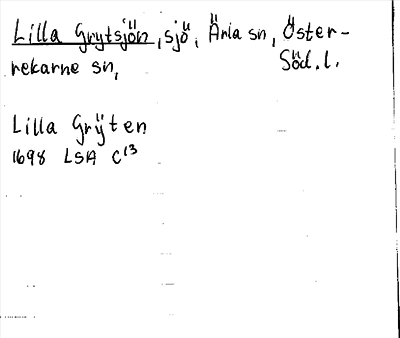 Lilla Grytsjön, sjö, Ärla sn, Öster-
rekarne sn, Söd. l.
Lilla Grÿten
1698 LSA C¹³